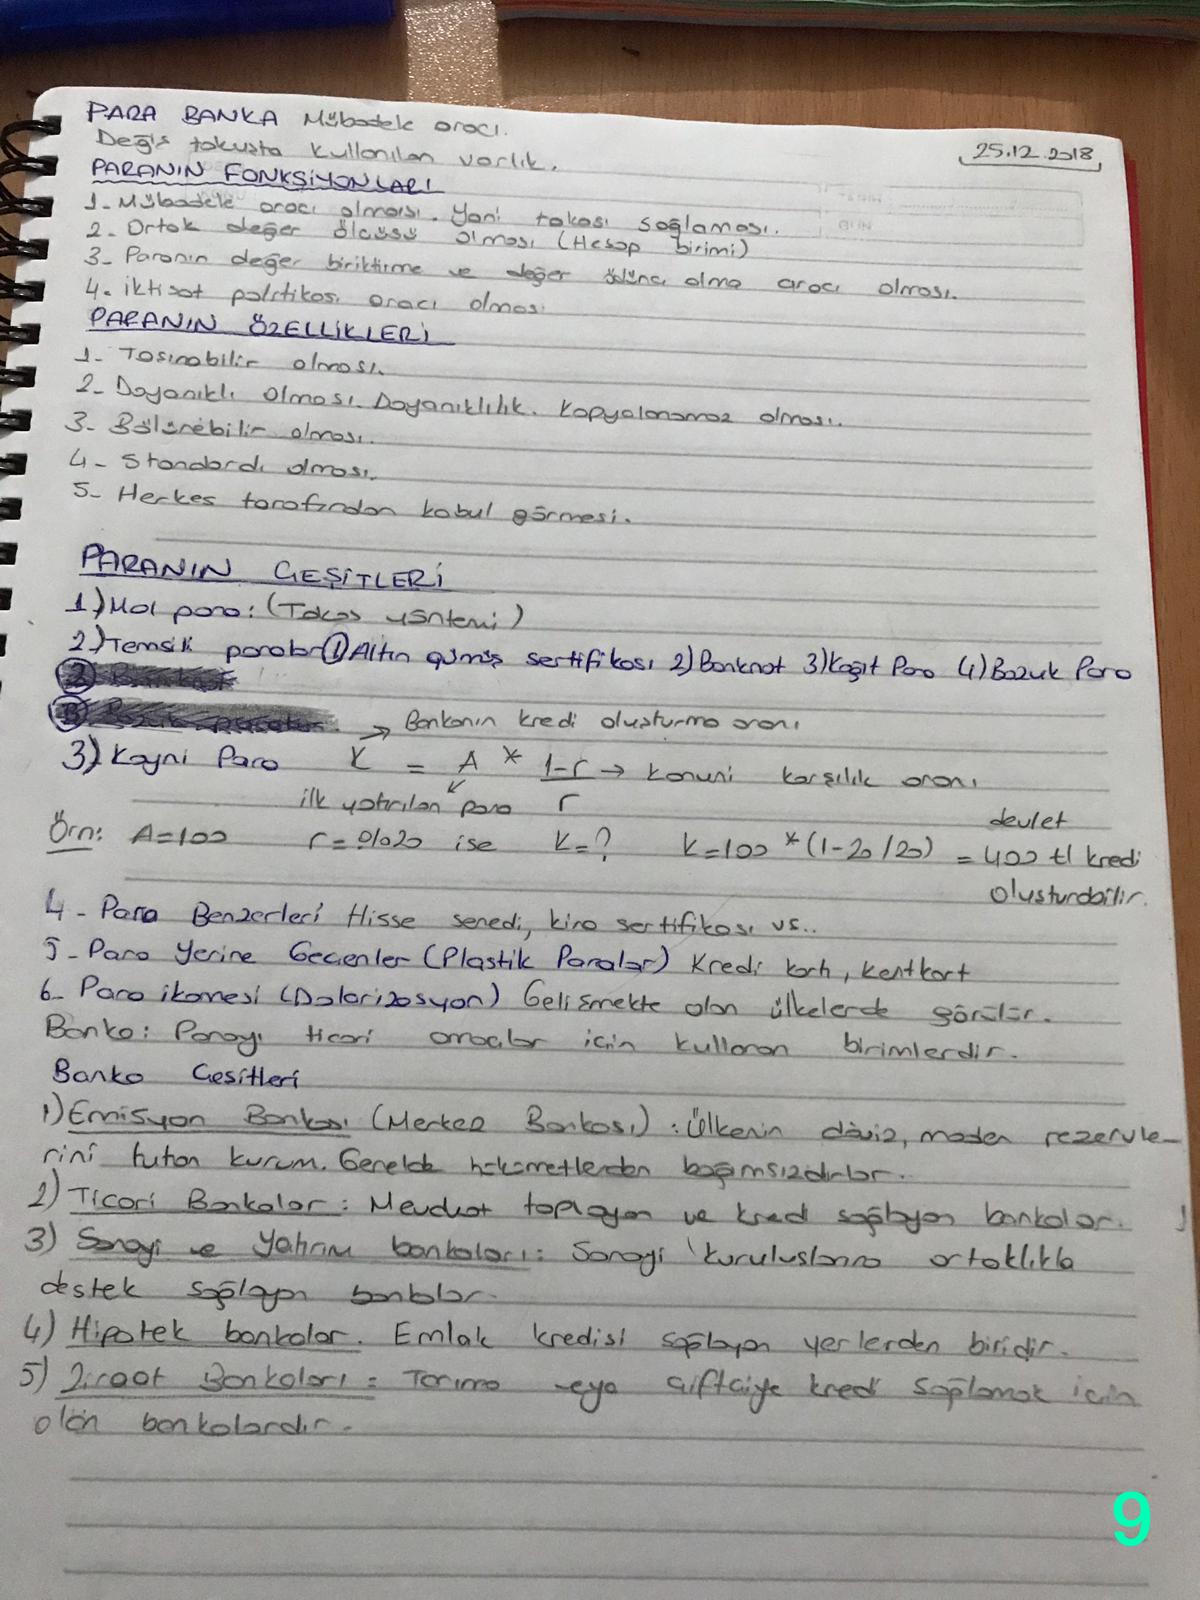 PARA BANKA Mübadele aracı.
25.12.2018
Değiş tokuşta kullanılan varlık.
PARANIN FONKSİYONLARI
1- Mübadele aracı olması. Yani takası sağlaması.
2- Ortak değer ölçüsü olması (Hesap birimi)
3- Paranın değer biriktirme ve değer ödünç alma aracı olması.
4. iktisat politikası aracı olması
PARANIN ÖZELLİKLERİ
1- Taşınabilir olması.
2- Dayanıklı olması. Dayanıklılık. Kopyalanamaz olması.
3- Bölünebilir olması.
4- Standardı olması.
5- Herkes tarafından kabul görmesi.
PARANIN ÇEŞİTLERİ
1) Mal para: (Takas yöntemi)
2) Temsili paralar ① Altın gümüş sertifikası 2) Banknot 3) Kağıt Para 4) Bozuk Para
→ Bankanın kredi oluşturma oranı
3) Kaydi Para K = A * 1-r → kanuni karşılık oranı
ilk yatırılan para r
Örn: A=100 r=%20 ise K=? K=100 * (1-20/20) = 400 tl kredi
devlet
oluşturabilir.
4 - Para Benzerleri Hisse senedi, kira sertifikası vs..
5- Para Yerine Geçenler (Plastik Paralar) Kredi kartı, kentkart
6- Para ikamesi (Dolarizasyon) Gelişmekte olan ülkelerde görülür.
Banka: Parayı ticari amaçlar için kullanan birimlerdir.
Banka Çeşitleri
1) Emisyon Bankası (Merkez Bankası) : Ülkenin döviz, maden rezervle-
rini tutan kurum. Genelde hükümetlerden bağımsızdırlar.
2) Ticari Bankalar : Mevduat toplayan ve kredi sağlayan bankalar.
3) Sanayi ve Yatırım bankaları : Sanayi kuruluşlarına ortaklıkla
destek sağlayan bankalar.
4) Hipotek bankalar. Emlak kredisi sağlayan yerlerden biridir.
5) Ziraat Bankaları : Tarıma veya çiftçiye kredi sağlamak için
olan bankalardır.
9